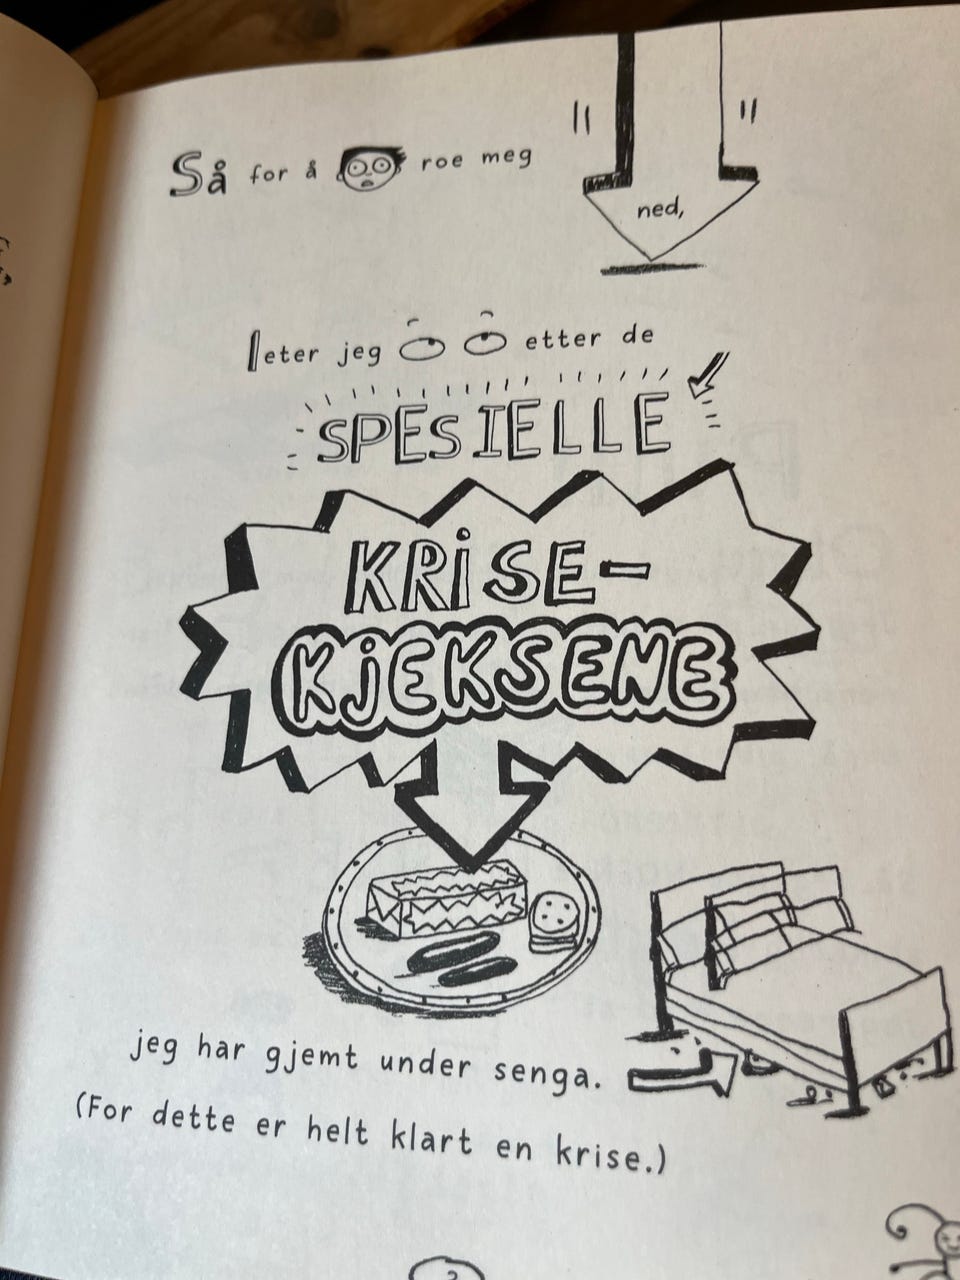 Så for å roe meg
ned,
leter jeg etter de
SPESIELLE
KRiSE-
KjEKSENE
jeg har gjemt under senga.
(For dette er helt klart en krise.)